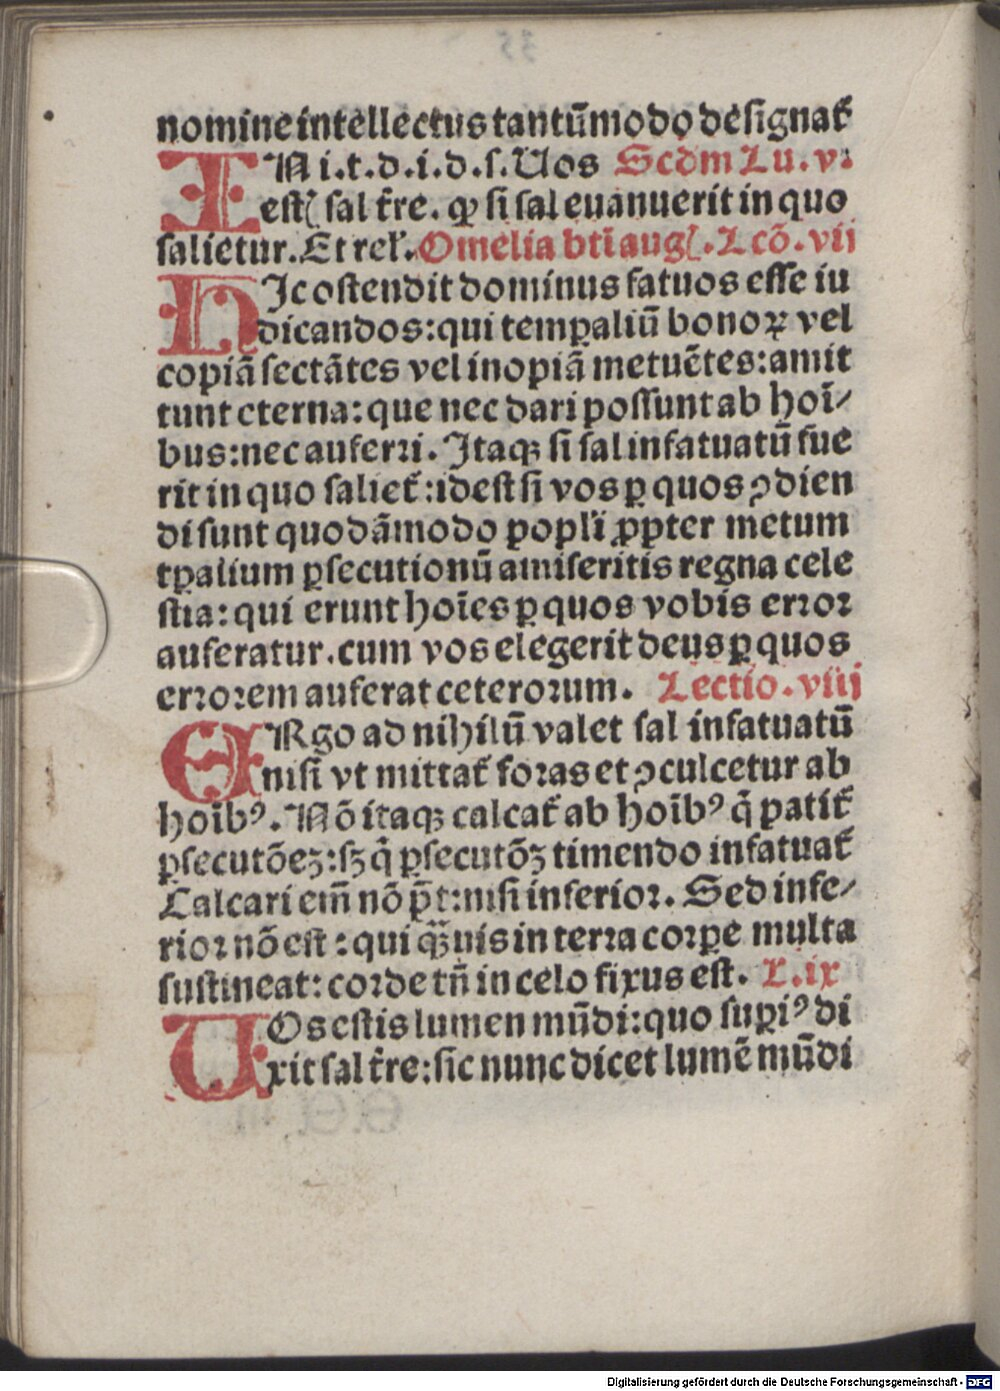 nomine intellectus tantūmodo designat᷑
IN i.t.d.i.d.s. Uos Scḋm Lu. v.
estꝭ sal t̄re. ꝙ si sal euanuerit in quo
salietur. Et rel'. Omelia bti̅ augꝭ. Lcō. vii
HIc ostendit dominus fatuos esse iu
dicandos: qui temꝑaliū bonoꝝ vel
copiā sectātes vel inopiā metuētes: amit
tunt eterna: que nec dari possunt ab hoi̅⸗
bus: nec auferri. Itaqꝫ si sal infatuatū fue
rit in quo saliet᷑: idest si vos ꝑ quos ꝯdien
di sunt quodāmodo popl'i ꝓpter metum
tꝑalium ꝑsecutionū amiseritis regna cele
stia: qui erunt hoi̅es ꝑ quos vobis error
auferatur. cum vos elegerit deus ꝑ quos
errorem auferat ceterorum. Lectio. viij
ERgo ad nihilū valet sal infatuatū
nisi vt mittat᷑ foras et ꝯculcetur ab
hoi̅bꝰ. Nō itaqꝫ calcat᷑ ab hoi̅bꝰ q̇ patit᷑
ꝑsecutōeꝫ: sꝫ q̇ ꝑsecutōꝫ timendo infatuat᷑
Calcari em̄ nō p̄t: nisi inferior. Sed infe⸗
rior nō est: qui qꝫ̄uis in terra corꝑe multa
sustineat: corde tn̄ in celo fixus est. L. ix
UOs estis lumen mūdi: quo supiꝰ di
xit sal t̄re: sic nunc dicet lumē mūdi
Digitalisierung gefördert durch die Deutsche Forschungsgemeinschaft - DFG